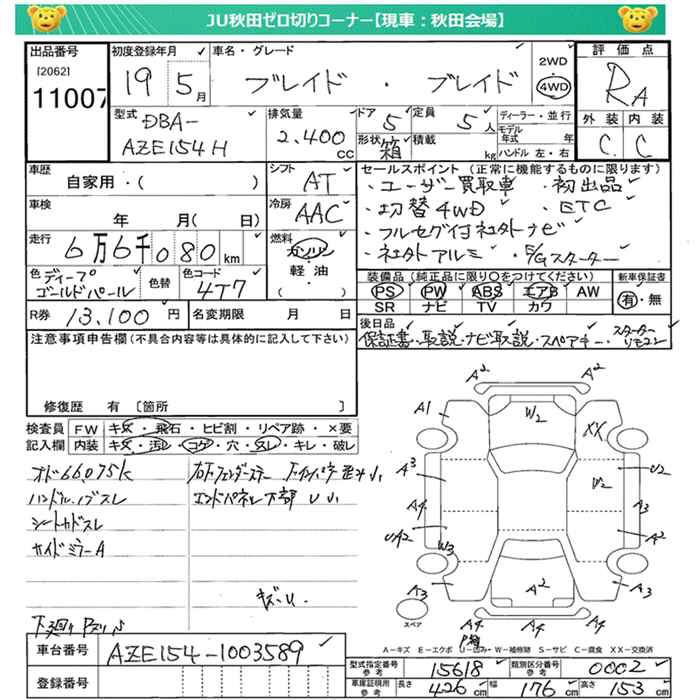 JU秋田ゼロ切りコーナー【現車：秋田会場】
出品番号
[2062]
11007
初度登録年月
19 5月
車名・グレード
ブレイド・ブレイド
2WD
4WD
評価点
RA
外装 内装
C C
型式
DBA-
AZE154H
排気量
2,400
CC
ドア
5
形状
箱
定員
5人
積載
kg
ディーラー・並行
モデル年式 年
ハンドル 左・右
車歴
自家用・( )
シフト
AT
車検
年 月( 日)
冷房
AAC
走行
6万6千080km
燃料
ガソリン
軽油
( )
色 ディープゴールドパール
色替
色コード
4T7
R券 13,100円
名変期限 月 日
セールスポイント (正常に機能するものに限ります)
・ユーザー買取車 ・初出品
・切替4WD ・ETC
・フルセグ付社外ナビ
・社外アルミ ・E/Gスターター
装備品 (純正品に限り○をつけてください)
新車保証書
PS PW ABS エアB AW
SR ナビ TV カワ
有・無
後日品
保証書・取説・ナビ取説・スペアキー・スターターリモコン
注意事項申告欄(不具合内容等は具体的に記入して下さい)
修復歴 有 [箇所 ]
検査員記入欄
FW キズ・飛石・ヒビ割・リペア跡・×要
内装 キズ・汚レ・コゲ・穴・スレ・キレ・破レ
オド66075K
ハンドル、ノブスレ
シートカドスレ
サイドミラーA
エンドパネル下部 U小
キズ
下廻り
A²
A1
W2
XX
A³
U2
W2
A4
A3
UA2
W3
A2
A3
A²
A3
A4
A4
A4
スペア
A-キズ E-エクボ U-凹み W-補修跡 S-サビ C-腐食 XX-交換済
車台番号
AZE154-1003589
登録番号
型式指定番号 参考
15618
類別区分番号 参考
0002
車庫証明用 参考
長さ 426cm
幅 176cm
高さ 153cm